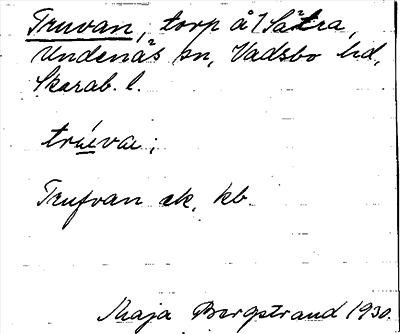 Truvan, torp å 1 Sätra,
Undenäs sn, Vadsbo hd,
Skarab. l.
Trufvan ek. kb.
Maja Bergstrand 1930.